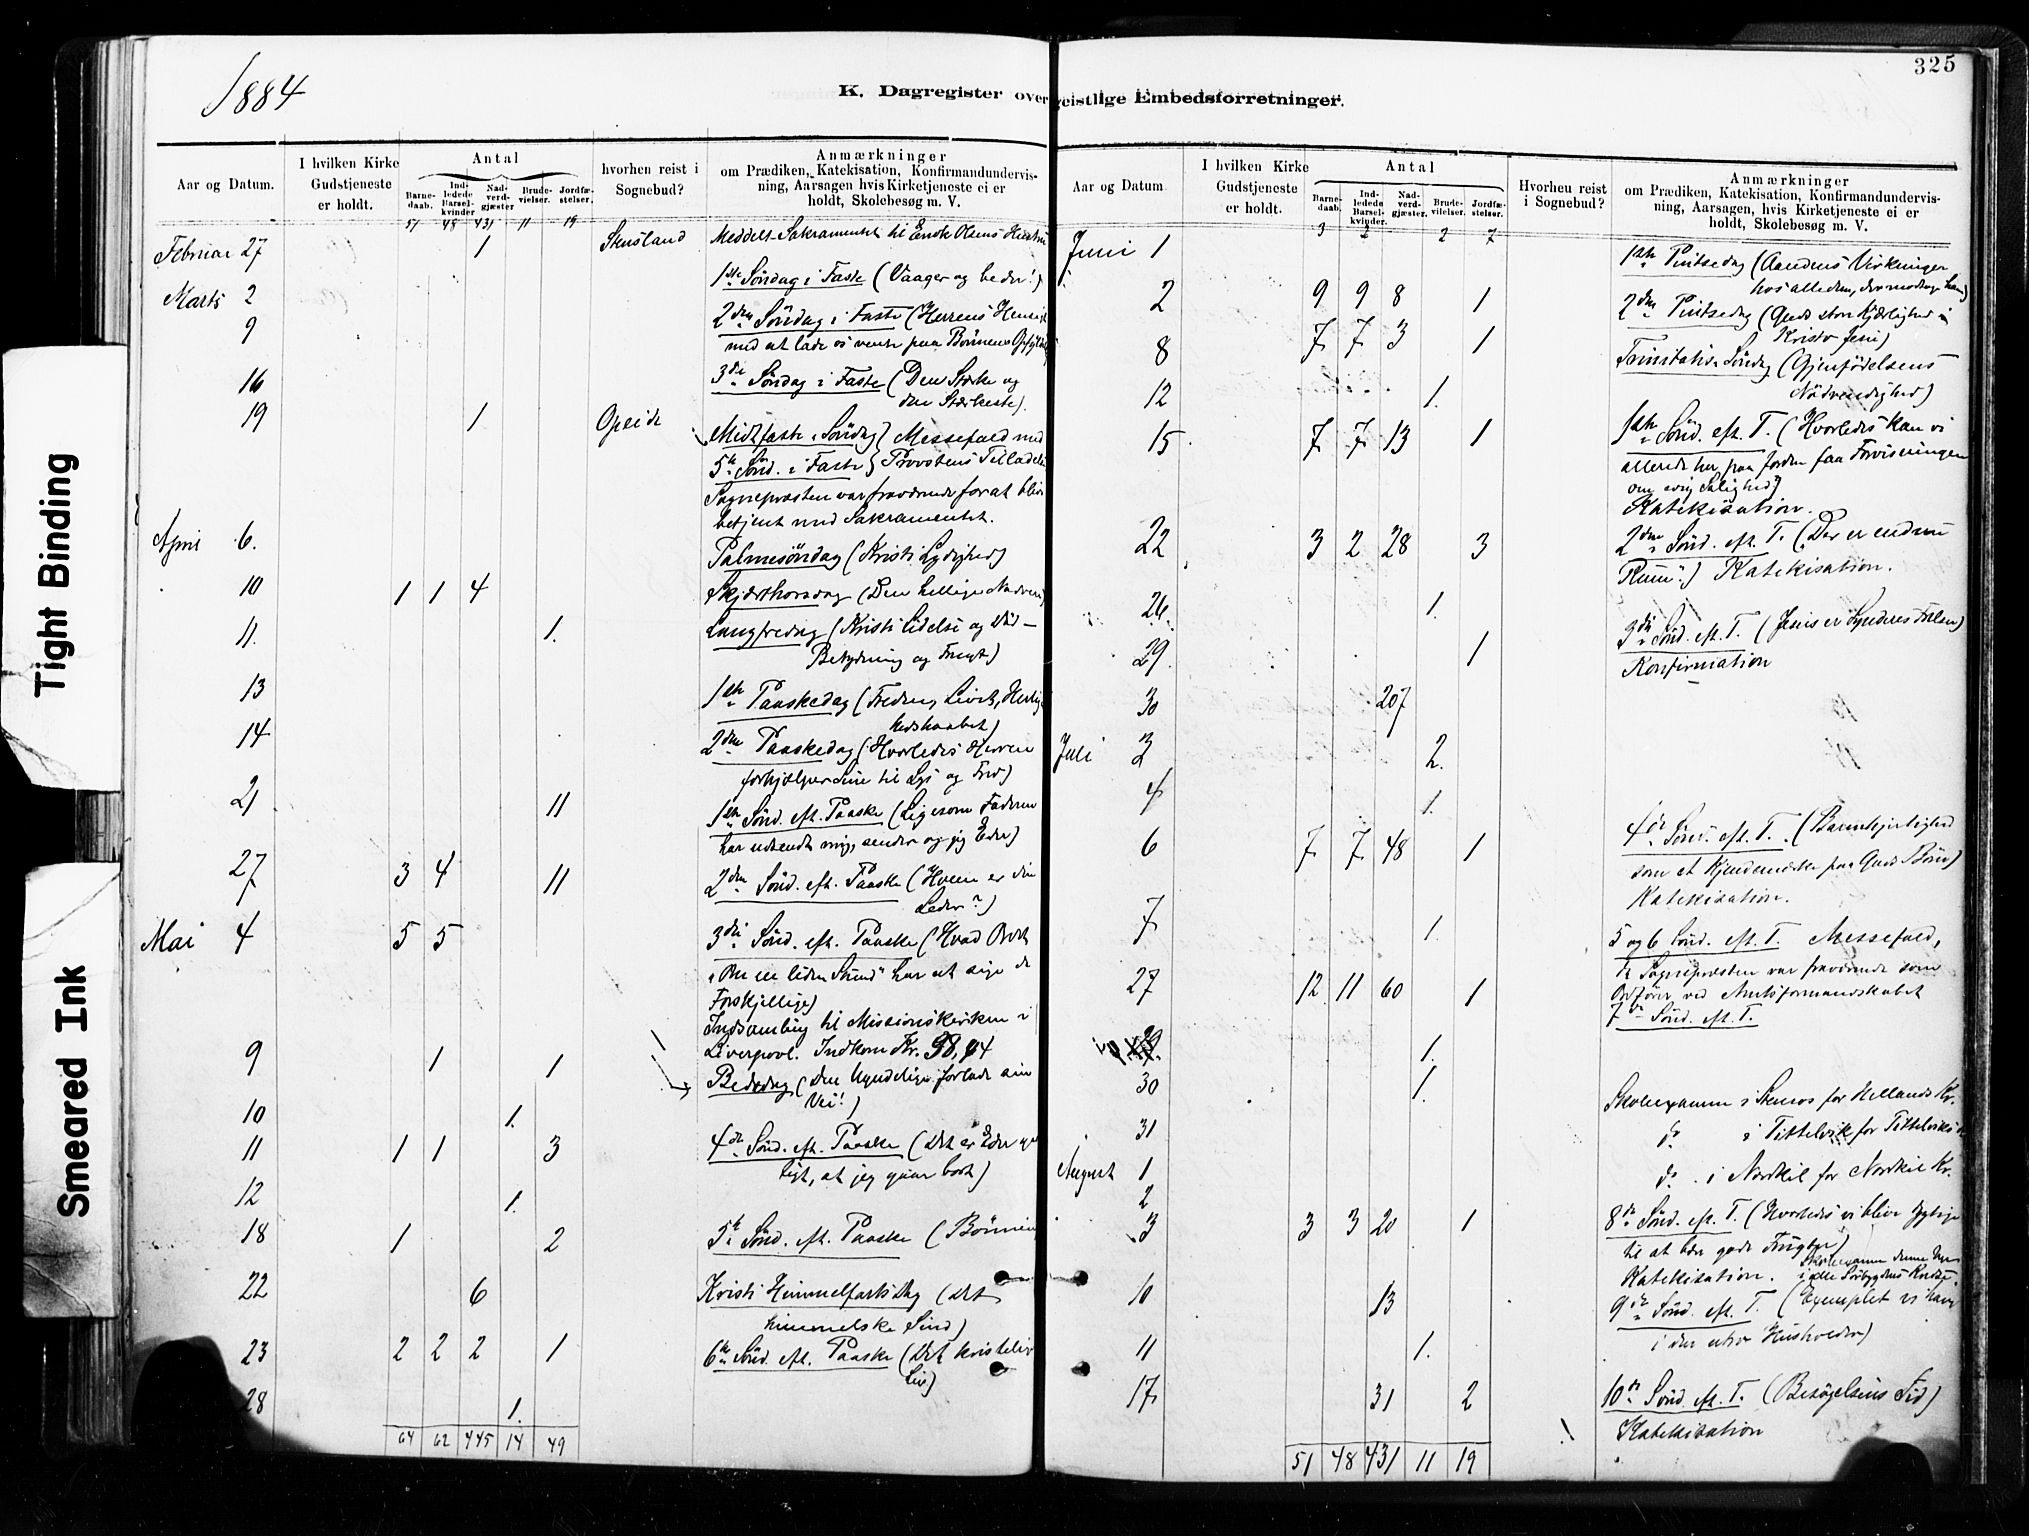 325
1884
K. Dagregister over geistlige Embedsforretninger.
Aar og Datum.
I hvilken Kirke Gudstjeneste er holdt.
Antal
Barnedaab.
Indledede Barselkvinder
Nadverdgjæster.
Brudevielser.
Jordfæstelser.
hvorhen reist i Sognebud?
Anmærkninger
om Prædiken, Katekisation, Konfirmandundervisning, Aarsagen hvis Kirketjeneste ei er holdt, Skolebesøg m. V.
51 48 431 11 19
Februar 27 1 Stensland Meddelt Sakramentet til Enok Olsens Hustru
Marts 2 1ste Söndag i Faste (Vaager og beder!)
9 2den Söndag i Faste (Herrens Hensigt
med at lade os vente paa Bönnens Opfyldelse
16 3die Söndag i Faste (Den Stærke og
den Stærkeste).
19 1 Opeide
Midtfaste Söndag } Messefald med
5te Sönd. i Faste } Provstens Tilladelse
Sognepræsten var fraværende for at blive
betjent med Sakramentet.
April 6. Palmesöndag (Kristi Lydighed)
10 1 1 4 Skjærthorsdag (Den hellige Nadvere)
11. 1. Langfredag (Kristi Lidelse og Död -
Betydning og Frugt)
13 1ste Paaskedag (Freden, Livet, Herlig-
hedshaabet)
14 2den Paaskedag (Hvorledes Herren
forhjælper Sine til Lys og Fred)
21 11 1ste Sönd. eft. Paaske (Ligesom Faderen
har udsendt mig, sender og jeg Eder)
27 3 4 11 2den Sönd. eft. Paaske (Hvem er din
Leder?)
Mai 4 5 5 3die Sönd. eft. Paaske (Hvad Ordet
"Om en liden Stund" har at sige de
Forskjellige)
Indsamling til Missionskirken i
Liverpool. Indkom Kr. 98,94
9 1 1 Bededag (Den Ugudelige forlade sin
Vei!)
10 1.
11 1 1 3 4de Sönd. eft. Paaske (Det er Eder gav-
ligt, at jeg gaar bort)
12 1.
18 1 2 5te Sönd. eft. Paaske (Bönnen
22 6 Kristi Himmelfartsdag (Det
himmelske Sind)
23 2 2 2 1 6te Sönd. eft. Paaske (Det kristelige
Liv)
28 1.
64 62 445 14 49
Aar og Datum
I hvilken Kirke Gudstjeneste er holdt.
Antal
Barnedaab.
Indledede Barselkvinder.
Nadverdgjæster.
Brudevielser.
Jordfæstelser.
Hvorhen reist i Sognebud?
Anmærkninger
om Prædiken, Katekisation, Konfirmandundervisning, Aarsagen, hvis Kirketjeneste ei er holdt, Skolebesøg m. V.
Juni 1 3 2 2 7 1ste Pintsedag (Aandens Virkninger
hos alle dem, der modtage ham)
2 9 9 8 1 2den Pintsedag (Guds store Kjærlighed i
Kristo Jesu)
8 7 7 3 1 Trinitatis Söndag (Gjenfödelsens
Nödvendighed)
12 1.
15 7 7 13 1 1ste Sönd. eft. T. (Hvorledes kan vi
allerede her paa Jorden faa Forvisningen
om evig Salighed?
Katekisation.
22 3 2 28 3 2den Sönd. eft. T. ("Der er endnu
Rum".) Katekisation.
26. 1.
29 1 3die Sönd. eft. T. (Jesus er Synderes Frelser)
Konfirmation
30 207
Juli 3 2.
4 1.
6 7 7 48 1 4de Sönd. eft. T. (Barmhjertighed
som et Kjendemærke paa Guds Börn)
Katekisation.
7 1. 5 og 6 Sönd. eft. T. Messefald,
da Sognepræsten var fraværende som
Ordförer ved Amtsformandskabet
27 12 11 60 1 7de Sönd. eft. T.
29. 1.
30 1. Skoleexamen i Stensos for Hellands Kr.
31 do i Tittelvik for Tittelviks
August 1 do i Nordkil for Nordkil Kr.
2
3 3 3 20 1 8de Sönd. eft. T. (Hvorledes vi blive dygtige
til at bære gode Frugter)
Katekisation. Skoleexamen denne
i alle Sörbygdens Kredse.
10 13 9de Sönd. eft. T. (Exemplet vi have
i den utro Husholder)
11 1.
17 31 2 10de Sönd. eft. T. (Besögelsens Tid)
Katekisation
51 48 431 11 19
Tight Binding
Smeared Ink